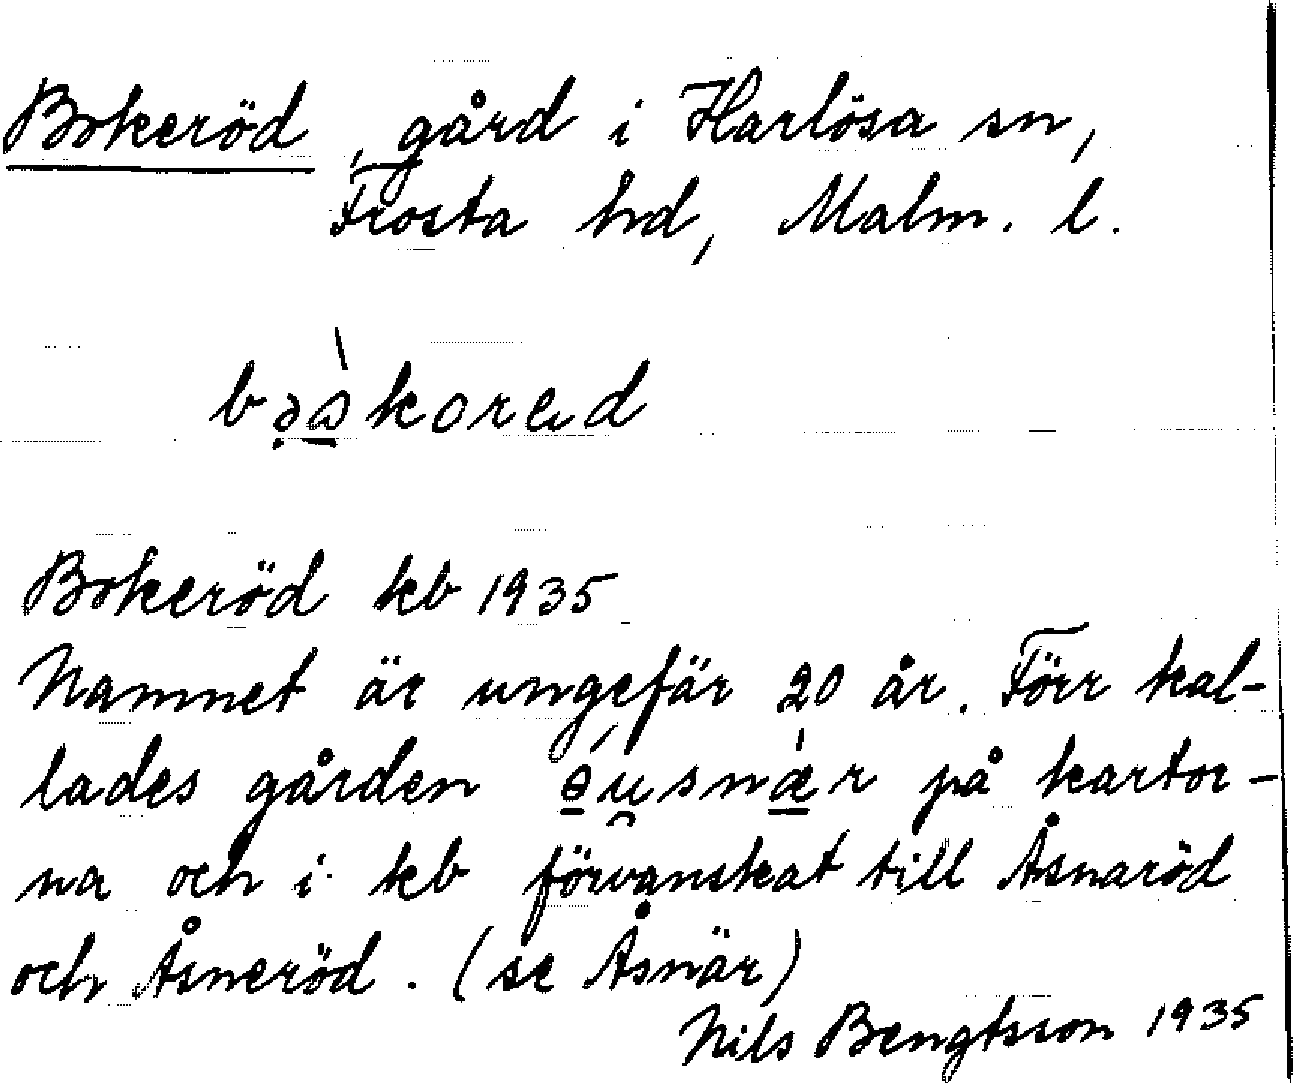 Bokeröd, gård i Harlösa sn,
Frosta hd, Malm. l.
Bokeröd kb 1935
Namnet är ungefär 20 år. Förr kal-
lades gården på kartor-
na och i kb förvanskat till Åsnaröd
och Åsneröd. (se Åsnär)
Nils Bengtsson 1935